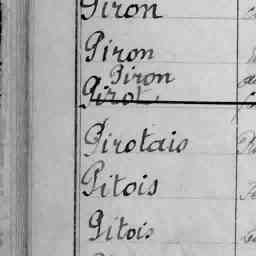 Piron
Piron
Piron
Pirot
Pirotais
Pitois
Pitois